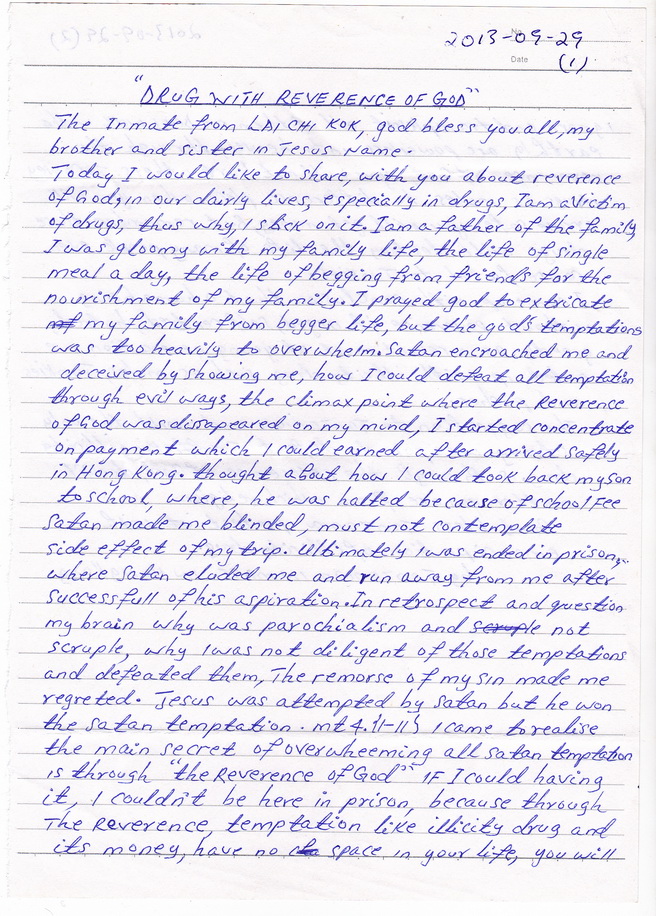 2013-09-29
No.
Date (1)
"DRUG WITH REVERENCE OF GOD"
The Inmate from LAI CHI KOK, god bless you all, my
brother and sister in Jesus Name.
Today I would like to share, with you about reverence
of God, in our dairly lives, especially in drugs, I am a Victim
of drugs, thus why, I stick on it. I am a father of the family,
I was gloomy with my family life, the life of single
meal a day, the life of begging from friends for the
nourishment of my family. I prayed god to extricate
my family from begger life, but the god's temptations
was too heavily to overwhelm. Satan encroached me and
deceived by showing me, how I could defeat all temptation
through evil ways, the climax point where the Reverence
of God was dissapeared on my mind, I started concentrate
on payment which I could earned after arrived safely
in Hong Kong. thought about how I could took back my son
to school, where, he was halted because of school fee
Satan made me blinded, must not contemplate
side effect of my trip. Ultimately I was ended in prison,
where Satan eluded me and run away from me after
successfull of his aspiration. In retrospect and question
my brain why was parochialism and scruple not
scruple, why I was not diligent of those temptations
and defeated them, The remorse of my sin made me
regreted. Jesus was attempted by satan but he won
the satan temptation. mt 4.{1-11} I came to realise
the main secret of overwheeming all satan temptation
is through "the Reverence of God" IF I could having
it, I couldn't be here in prison, because through
The Reverence, temptation like illicity drug and
its money, have no space in your life, you will